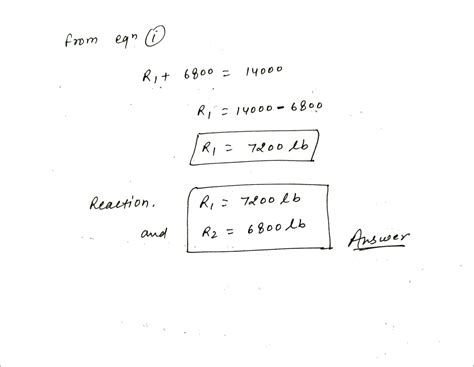 from eqn (i)
R1 + 6800 = 14000
R1 = 14000 - 6800
R1 = 7200 lb
Reaction. R1 = 7200 lb
and R2 = 6800 lb
Answer